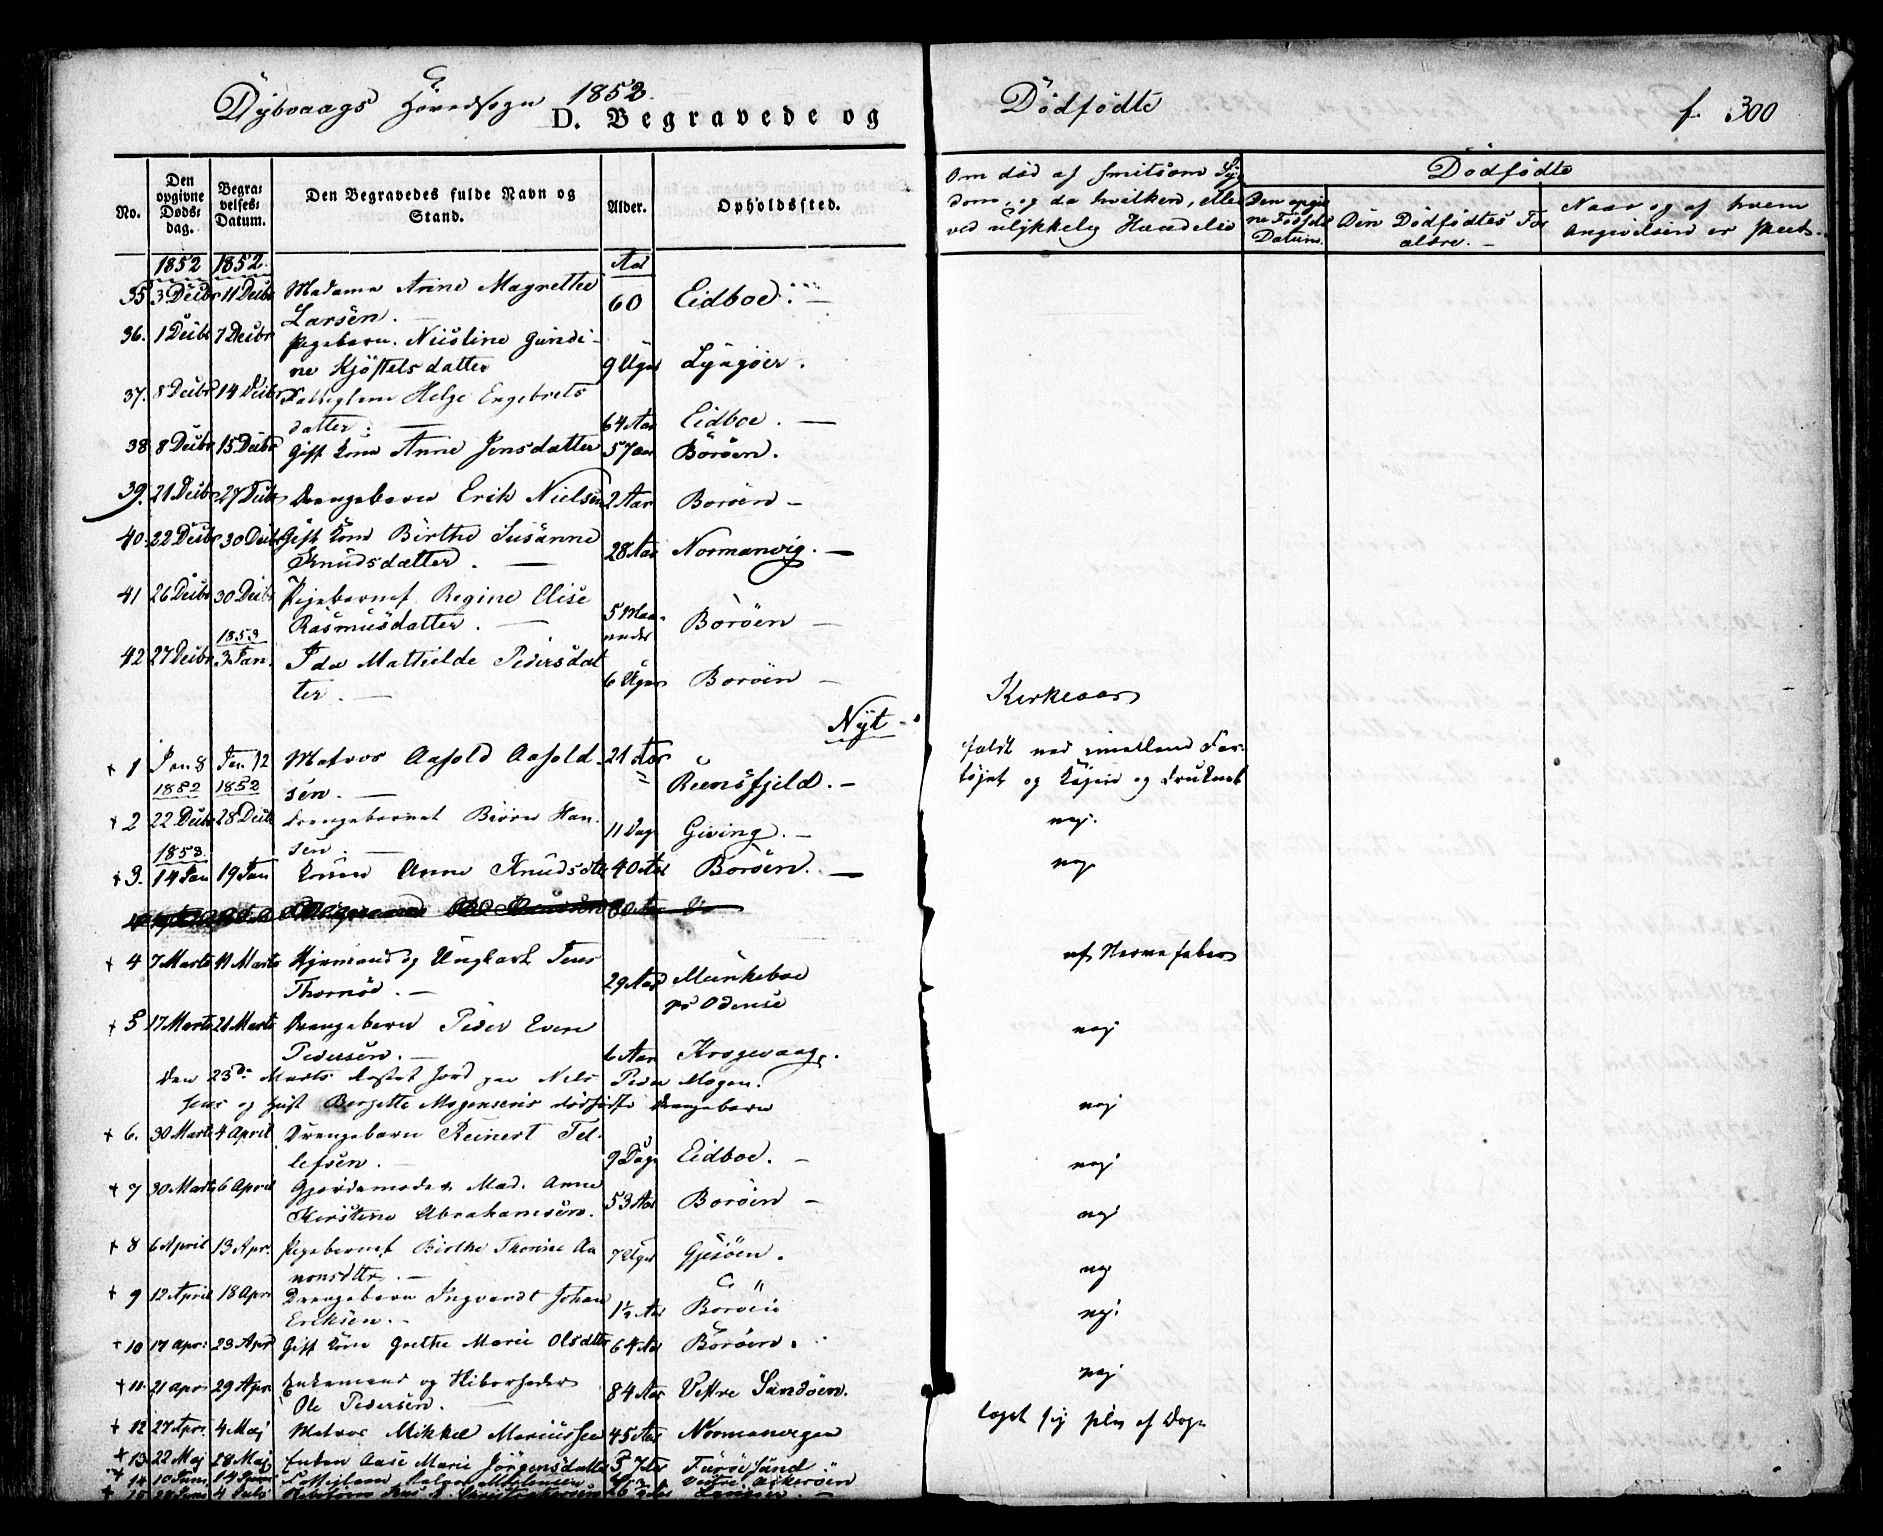 Dybvaags Hovedsogn 1852.
D. Begravede og
Dødfødte
f. 300
No.
Den opgivne Døds-dag.
Begra-velses-Datum.
Den Begravedes fulde Navn og Stand.
Alder.
Opholdssted.
Om død af smitsom Syg
dom, og da hvilken, eller
ved ulykkelig Hændelse
Dødfødte
Den opgiv
ne Fødsels
Datum.
Den Dødfødtes For
ældre.
Naar og af hvem
Angivelsen er skeet.
1852 1852. Aar
35 3 Decbr 11 Decbr Madame Anne Magrethe
Larsen. 60 Eidboe.
36. 1 Decbr 7 Decbr Pigebarn. Nicoline Gundi-
ne Kjøstelsdatter 9 Uger Lyngøer.
37. 8 Decbr 14 Decbr Helge Engebrets
datter. 64 Aar Eidboe.
38 8 Decbr 15 Decbr Gift Kone Anne Jensdatter 57 Aar Borøen.
39. 21 Decbr 27 Decbr Drengebarn Erik Nielsen 2 Aar Borøen
40. 22 Decbr 30 Decbr Gift Kone Birthe Susanne
Knudsdatter. 28 Aar Normanvig.
41 26 Decbr 30 Decbr Pigebarnet Regine Elise
Rasmusdatter. 5 Maa-
neder Borøen
1853
42 27 Decbr 3 Jan. Ida Mathilde Pedersdat
ter. 6 Uger Borøen
Nyt
Kirkeaar
1 Jan 8 Jan 12 Matros Aasold Aasold-
sen. 21 Aar Reensfjeld.
faldt ned imellem Far-
tøjet og Kajen og druknet
1852 1852
2 22 Decbr 28 Decbr Drengebarnet Biørn Han-
sen. 11 Dage Giving. nej.
1853.
3. 14 Jan 19 Jan Konen Anne Knudsdtr 40 Aar Borøen. nej
80 Aar Do
4 7 Marts 11 Marts og Ungkarl Jens
Thomød. 29 Aar Munkeboe
pr Odense
af Nervefeber
5 17 Marts 21 Marts Drengebarn Peder Even
Pedersen. 6 Aar Krogevaag. nej
Den 23de Marts kastet Jord paa Niels Peder Mogen-
sens og Hust Bergette Mogensens dødfødte Drengebarn nej
6. 30 Marts 4 April Drengebarn Reinert Tel-
lefsen. 9 Dage Eidboe. nej
7 30 Marts 6 April Gjordemoder Mad. Anne
Kirstine Abrahamsen. 53 Aar Borøen nej
8 6 April 13 Apr. Pigebarnet Birthe Thomine Aa
nonsdttr. 7 Uger Gjesøen. nej
9 12 April 18 Apr Drengebarn Ingvardt Johan
Eriksen. 1½ Aar Borøen nej.
10 17 Apr: 23 Apr Gift Kone Grethe Marie Olsdtter 64 Aar Borøen.
11. 21 Apr 29 Apr. Enkemand og
Ole Pedersen. 84 Aar Vestre Sandøen. nej
12 27 Apr. 4 Maj Matros Mikkel Mariussen 45 Aar Normanvigen
taget sig selv af Dage
13 22 Maj 28 Maj Enken Aase Marie Jörgensdatter 57 Aar Furøesund
14 10 Juni 14 Juni Vestre Askerøen
15 4 Juli 26 Aar